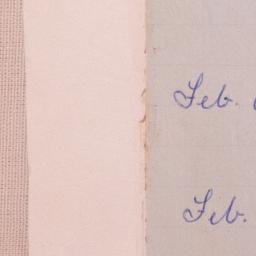 Feb.
Feb.